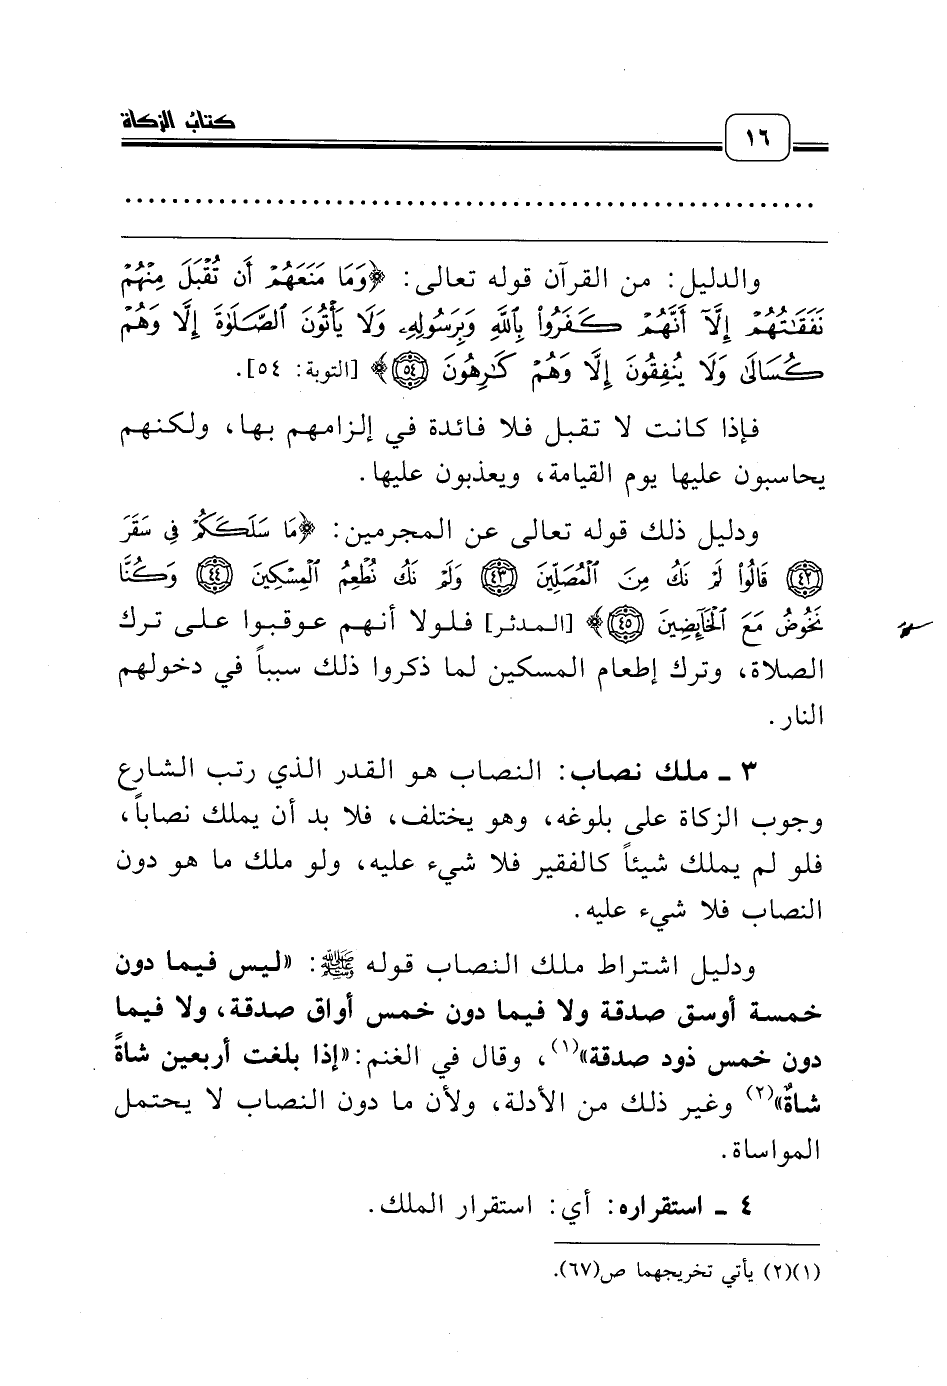 كتاب الزكاة
١٦
والدليل: من القرآن قوله تعالى: ﴿وَمَا مَنَعَهُمْ أَن تُقْبَلَ مِنْهُمْ
نَفَقَـٰتُهُمْ إِلَّآ أَنَّهُمْ كَفَرُوا۟ بِٱللَّهِ وَبِرَسُولِهِۦ وَلَا يَأْتُونَ ٱلصَّلَوٰةَ إِلَّا وَهُمْ
كُسَالَىٰ وَلَا يُنفِقُونَ إِلَّا وَهُمْ كَـٰرِهُونَ ٥٤﴾ [التوبة: ٥٤].
فإذا كانت لا تقبل فلا فائدة في إلزامهم بها، ولكنهم
يحاسبون عليها يوم القيامة، ويعذبون عليها.
ودليل ذلك قوله تعالى عن المجرمين: ﴿مَا سَلَكَكُمْ فِى سَقَرَ
٤٢ قَالُوا۟ لَمْ نَكُ مِنَ ٱلْمُصَلِّينَ ٤٣ وَلَمْ نَكُ نُطْعِمُ ٱلْمِسْكِينَ ٤٤ وَكُنَّا
نَخُوضُ مَعَ ٱلْخَآئِضِينَ ٤٥﴾ [المدثر] فلولا أنهم عوقبوا على ترك
الصلاة، وترك إطعام المسكين لما ذكروا ذلك سبباً في دخولهم
النار.
٣ ـ ملك نصاب: النصاب هو القدر الذي رتب الشارع
وجوب الزكاة على بلوغه، وهو يختلف، فلا بد أن يملك نصاباً،
فلو لم يملك شيئاً كالفقير فلا شيء عليه، ولو ملك ما هو دون
النصاب فلا شيء عليه.
ودليل اشتراط ملك النصاب قوله ﷺ: «ليس فيما دون
خمسة أوسق صدقة ولا فيما دون خمس أواق صدقة، ولا فيما
دون خمس ذود صدقة»(١)، وقال في الغنم: «إذا بلغت أربعين شاةً
شاةٌ»(٢) وغير ذلك من الأدلة، ولأن ما دون النصاب لا يحتمل
المواساة.
٤ ـ استقراره: أي: استقرار الملك.
(١)(٢) يأتي تخريجهما ص(٦٧).